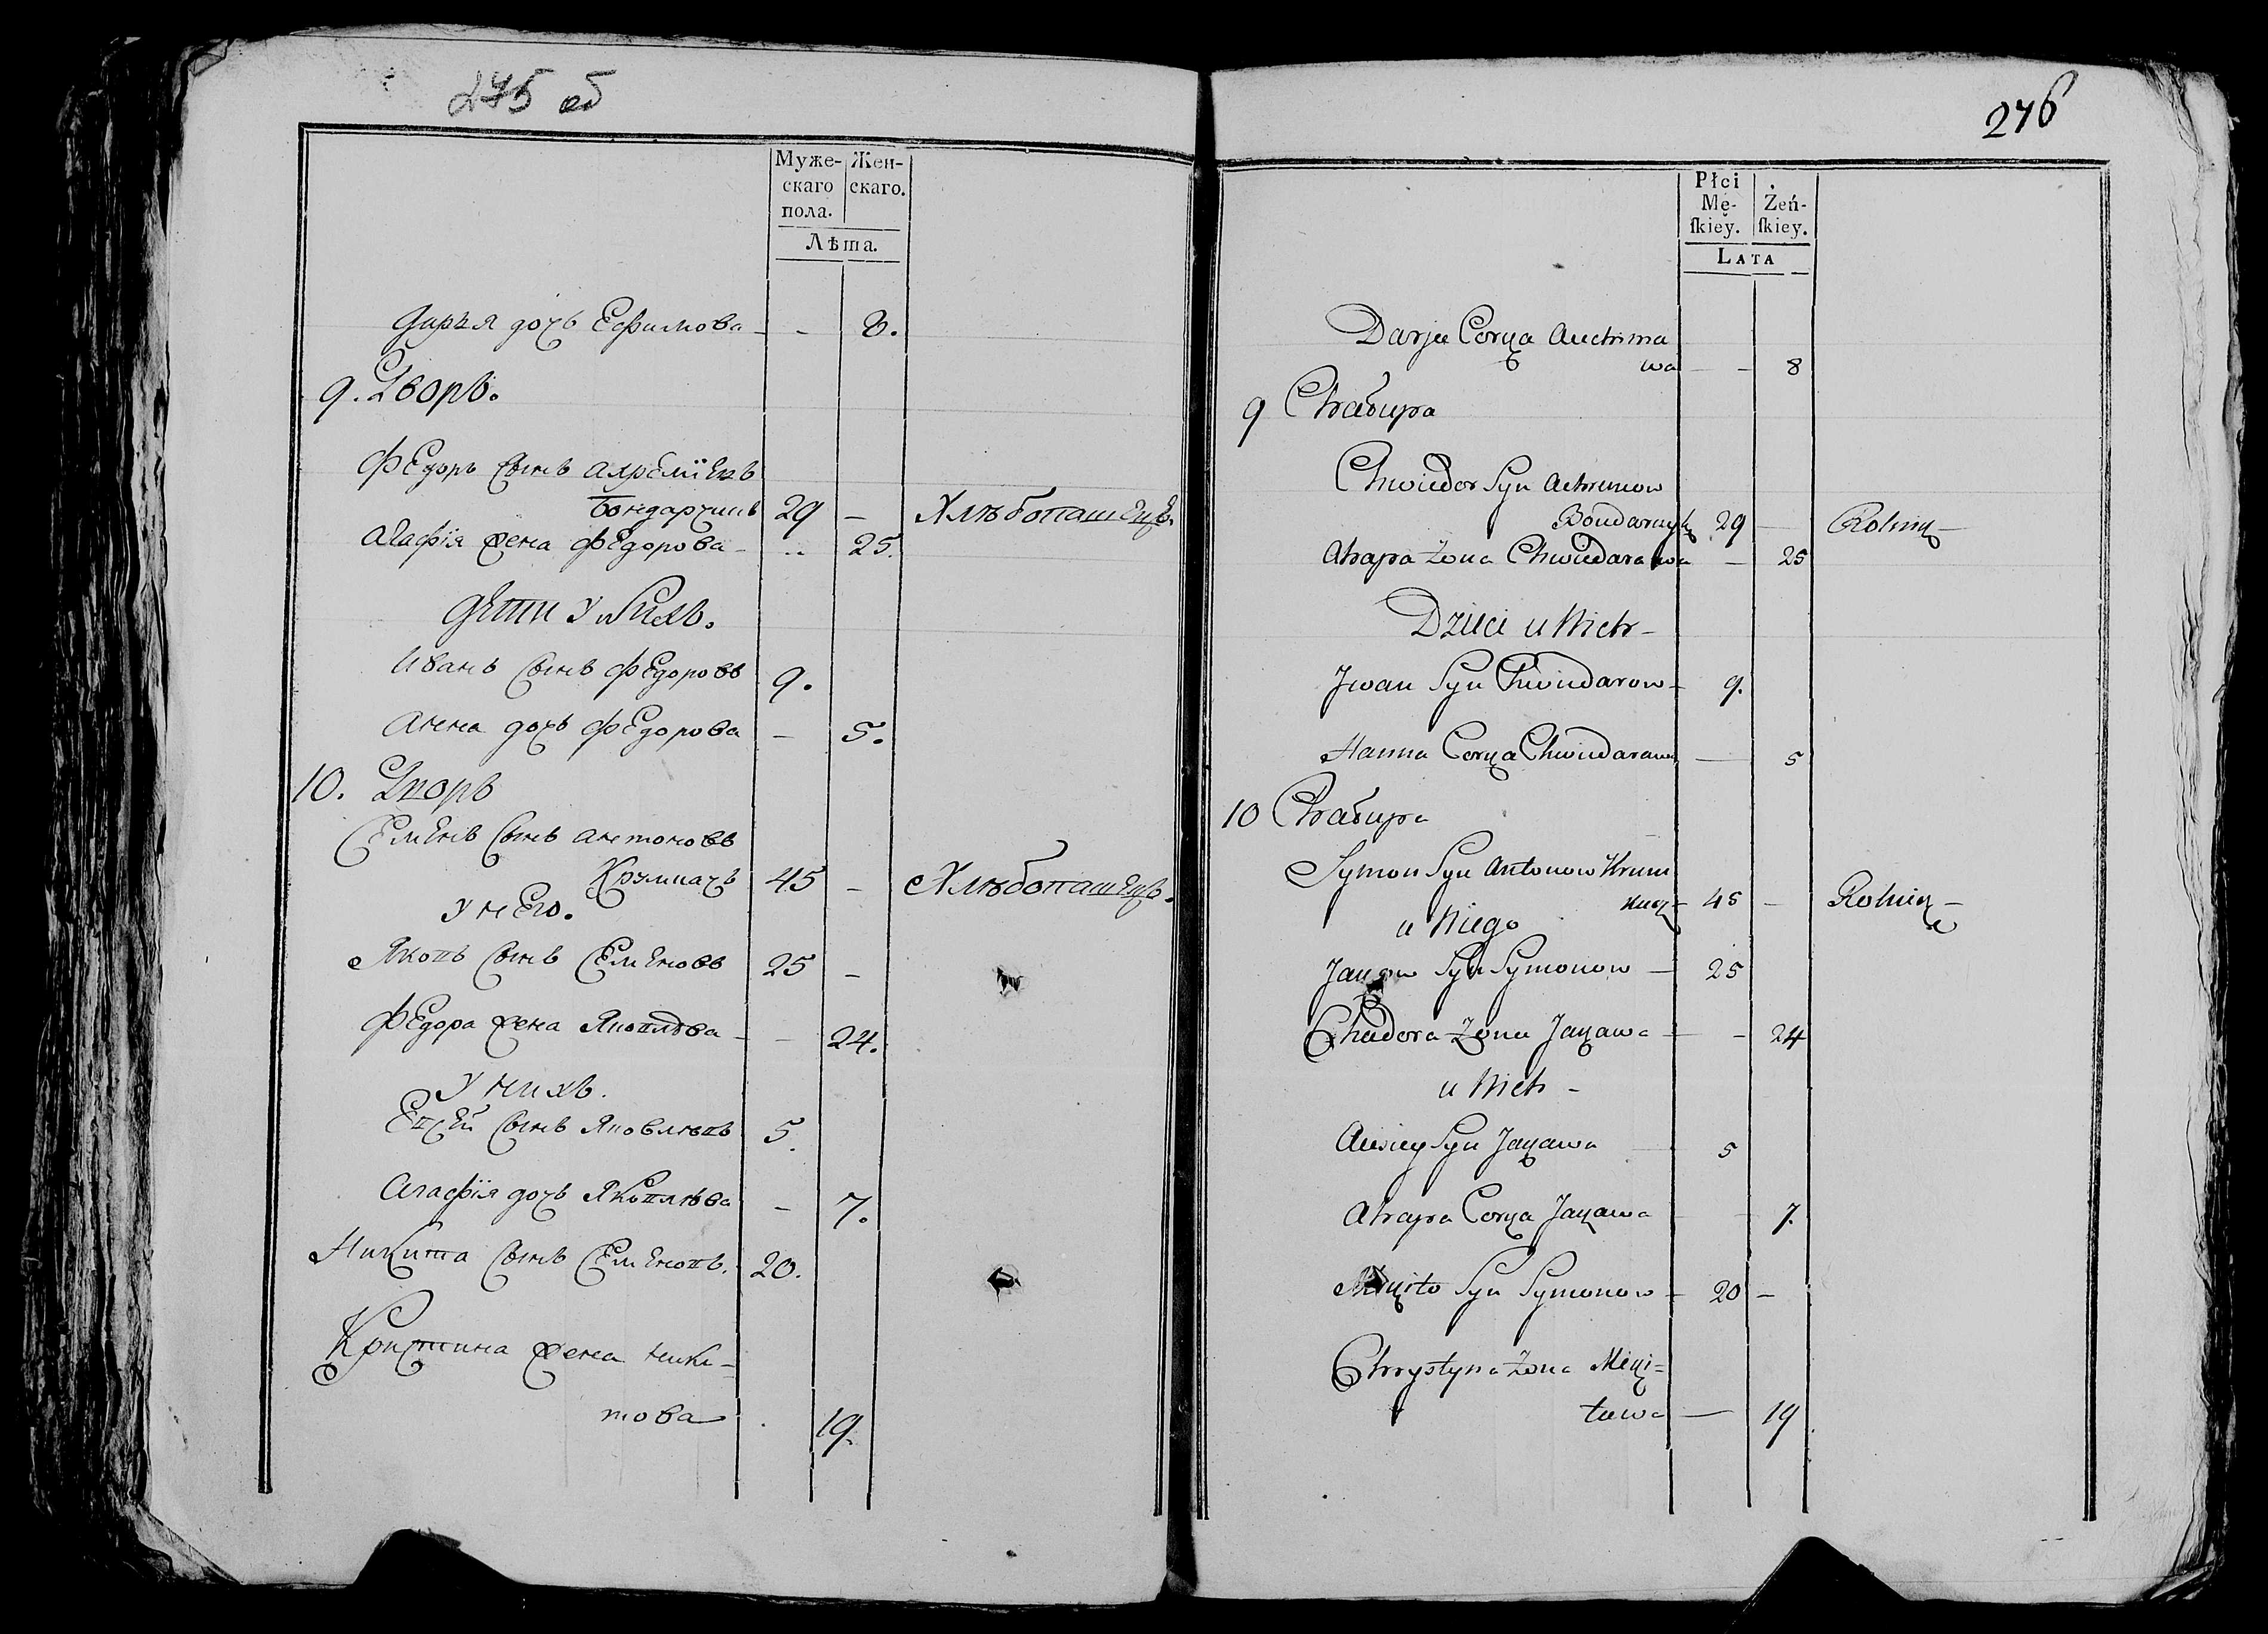 275 об
Муже-
скаго
пола.
Жен-
скаго.
Лѣта.
Дарья дочь Ефимова - - 8.
9. Дворъ.
Федоръ сынъ Ахремїевъ
Бондарчикъ 29 — Хлѣбопашецъ.
Агафія жена Федорова - .. 25.
Дѣти у Нихъ.
Иванъ сынъ Федоровъ 9.
Анна дочь Федорова — 5.
10. Дворъ
Семенъ сынъ Антоновъ
Крумкачъ 45 — Хлѣбопашецъ.
у него.
Яковъ сынъ Семеновъ 25 —
Федора жена Яковлѣва - — 24.
у нихъ.
Евсей сынъ Яковлѣвъ 5.
Агафїя дочь Яковлѣва — 7.
Никита сынъ Семеновъ. 20.
Кристина жена Ники-
това . 19.
276
Płci
Mę-
ſkiey.
Żeń-
ſkiey.
LATA
Darja Corka
wa — - 8
9 Chałupa
Chwiedor Syn
Bondarczyk 29 — Rolnik —
Ahapa Zona Chwiedarawa — 25
Dzieci u Nich —
Jwan Syn Chwiedarow — 9.
Hanna Corka Chwiedarawa — 5
10 Chałupa
Symon Syn Antonow Krum
kacz - 45 — Rolnik —
u Niego
Syn Symonow — 25
Chadora Zona Jakawa — - 24
u Nich -
Auxiey Syn Jakawa — 5
Ahapa Corka Jakawa 7.
Mikita Syn Symonow - 20 —
Chrystyna Zona Miki=
tawa — 19